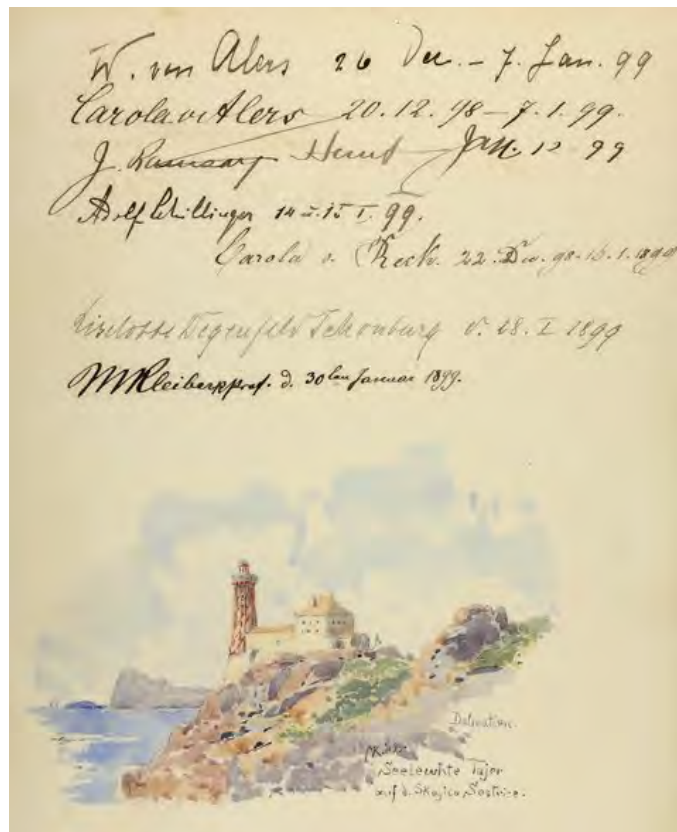 W. von Alers 26 Dec. - 7. Jan. 99
Carola v. Alers 20.12.98 - 7.1.99.
J. Ramsay Jan. 12 99
Adolf Schillinger 14 u. 15 I. 99.
Carola v. Reck. 22. Dec. 98 - 1. 1899
Liselotte Degenfeld Schonburg d. 28. I 1899
MKleiber Prof. d. 30ten Januar 1899.
Dalmatien.
MK
Seeleuchte Tajer
auf d. Skoglio Sestrice.